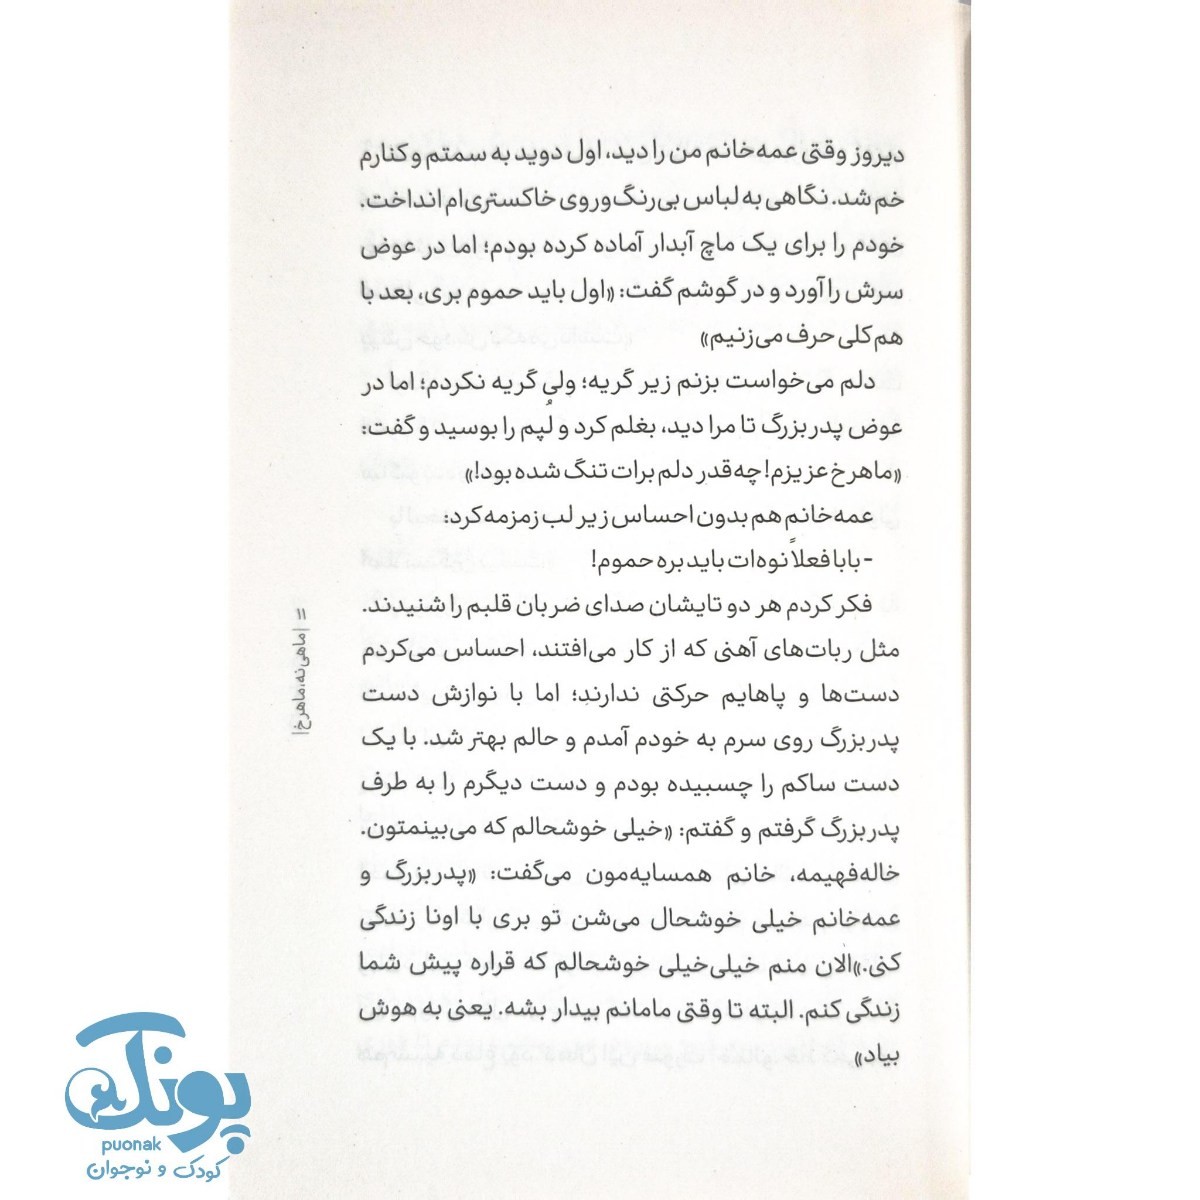 دیروز وقتی عمه‌خانم من را دید، اول دوید به سمتم و کنارم
خم شد. نگاهی به لباس بی‌رنگ‌وروی خاکستری‌ام انداخت.
خودم را برای یک ماچ آبدار آماده کرده بودم؛ اما در عوض
سرش را آورد و در گوشم گفت: «اول باید حموم بری، بعد با
هم کلی حرف می‌زنیم»
دلم می‌خواست بزنم زیر گریه؛ ولی گریه نکردم؛ اما در
عوض پدربزرگ تا مرا دید، بغلم کرد و لُپم را بوسید و گفت:
«ماهرخ عزیزم! چه‌قدر دلم برات تنگ شده بود!»
عمه‌خانم هم بدون احساس زیر لب زمزمه کرد:
- بابا فعلاً نوه‌ات باید بره حموم!
فکر کردم هر دو تایشان صدای ضربان قلبم را شنیدند.
مثل ربات‌های آهنی که از کار می‌افتند، احساس می‌کردم
دست‌ها و پاهایم حرکتی ندارند؛ اما با نوازش دست
پدربزرگ روی سرم به خودم آمدم و حالم بهتر شد. با یک
دست ساکم را چسبیده بودم و دست دیگرم را به طرف
پدربزرگ گرفتم و گفتم: «خیلی خوشحالم که می‌بینمتون.
خاله‌فهیمه، خانم همسایه‌مون می‌گفت: «پدربزرگ و
عمه‌خانم خیلی خوشحال می‌شن تو بری با اونا زندگی
کنی.» الان منم خیلی‌خیلی خوشحالم که قراره پیش شما
زندگی کنم. البته تا وقتی مامانم بیدار بشه. یعنی به هوش
بیاد»
| ماهی نه، ماهرخ |
پونک
puonak
کودک و نوجوان